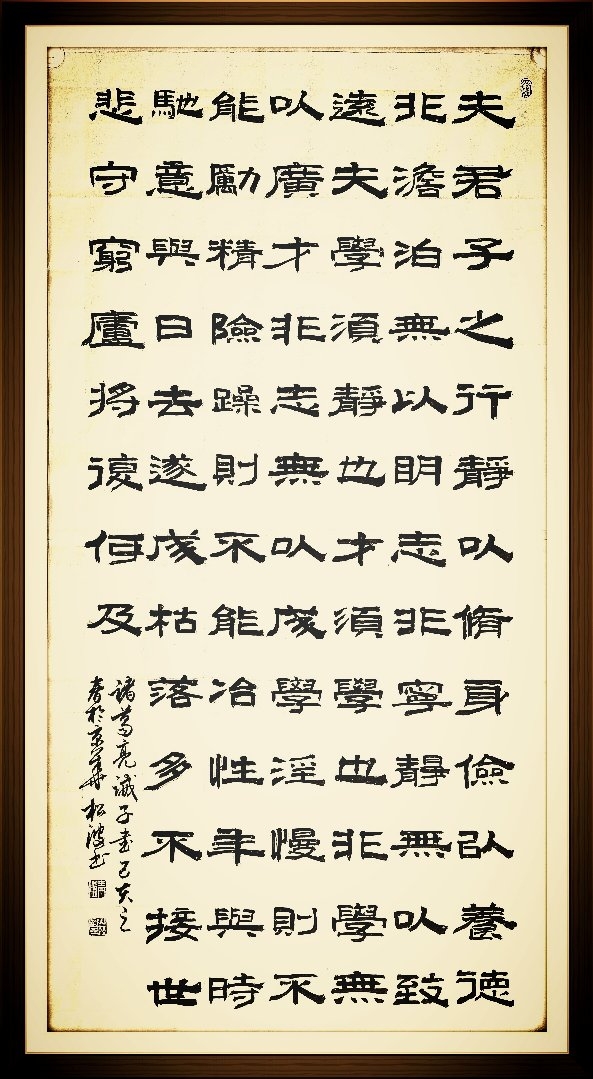 夫君子之行靜以脩身儉以養德
非澹泊無以明志非寧靜無以致
遠夫學須靜也才須學也非學無
以廣才非志無以成學淫慢則不
能勵精險躁則不能冶性年與時
馳意與日去遂成枯落多不接世
悲守窮廬將復何及
諸葛亮誡子書己亥之
春於京華松波書